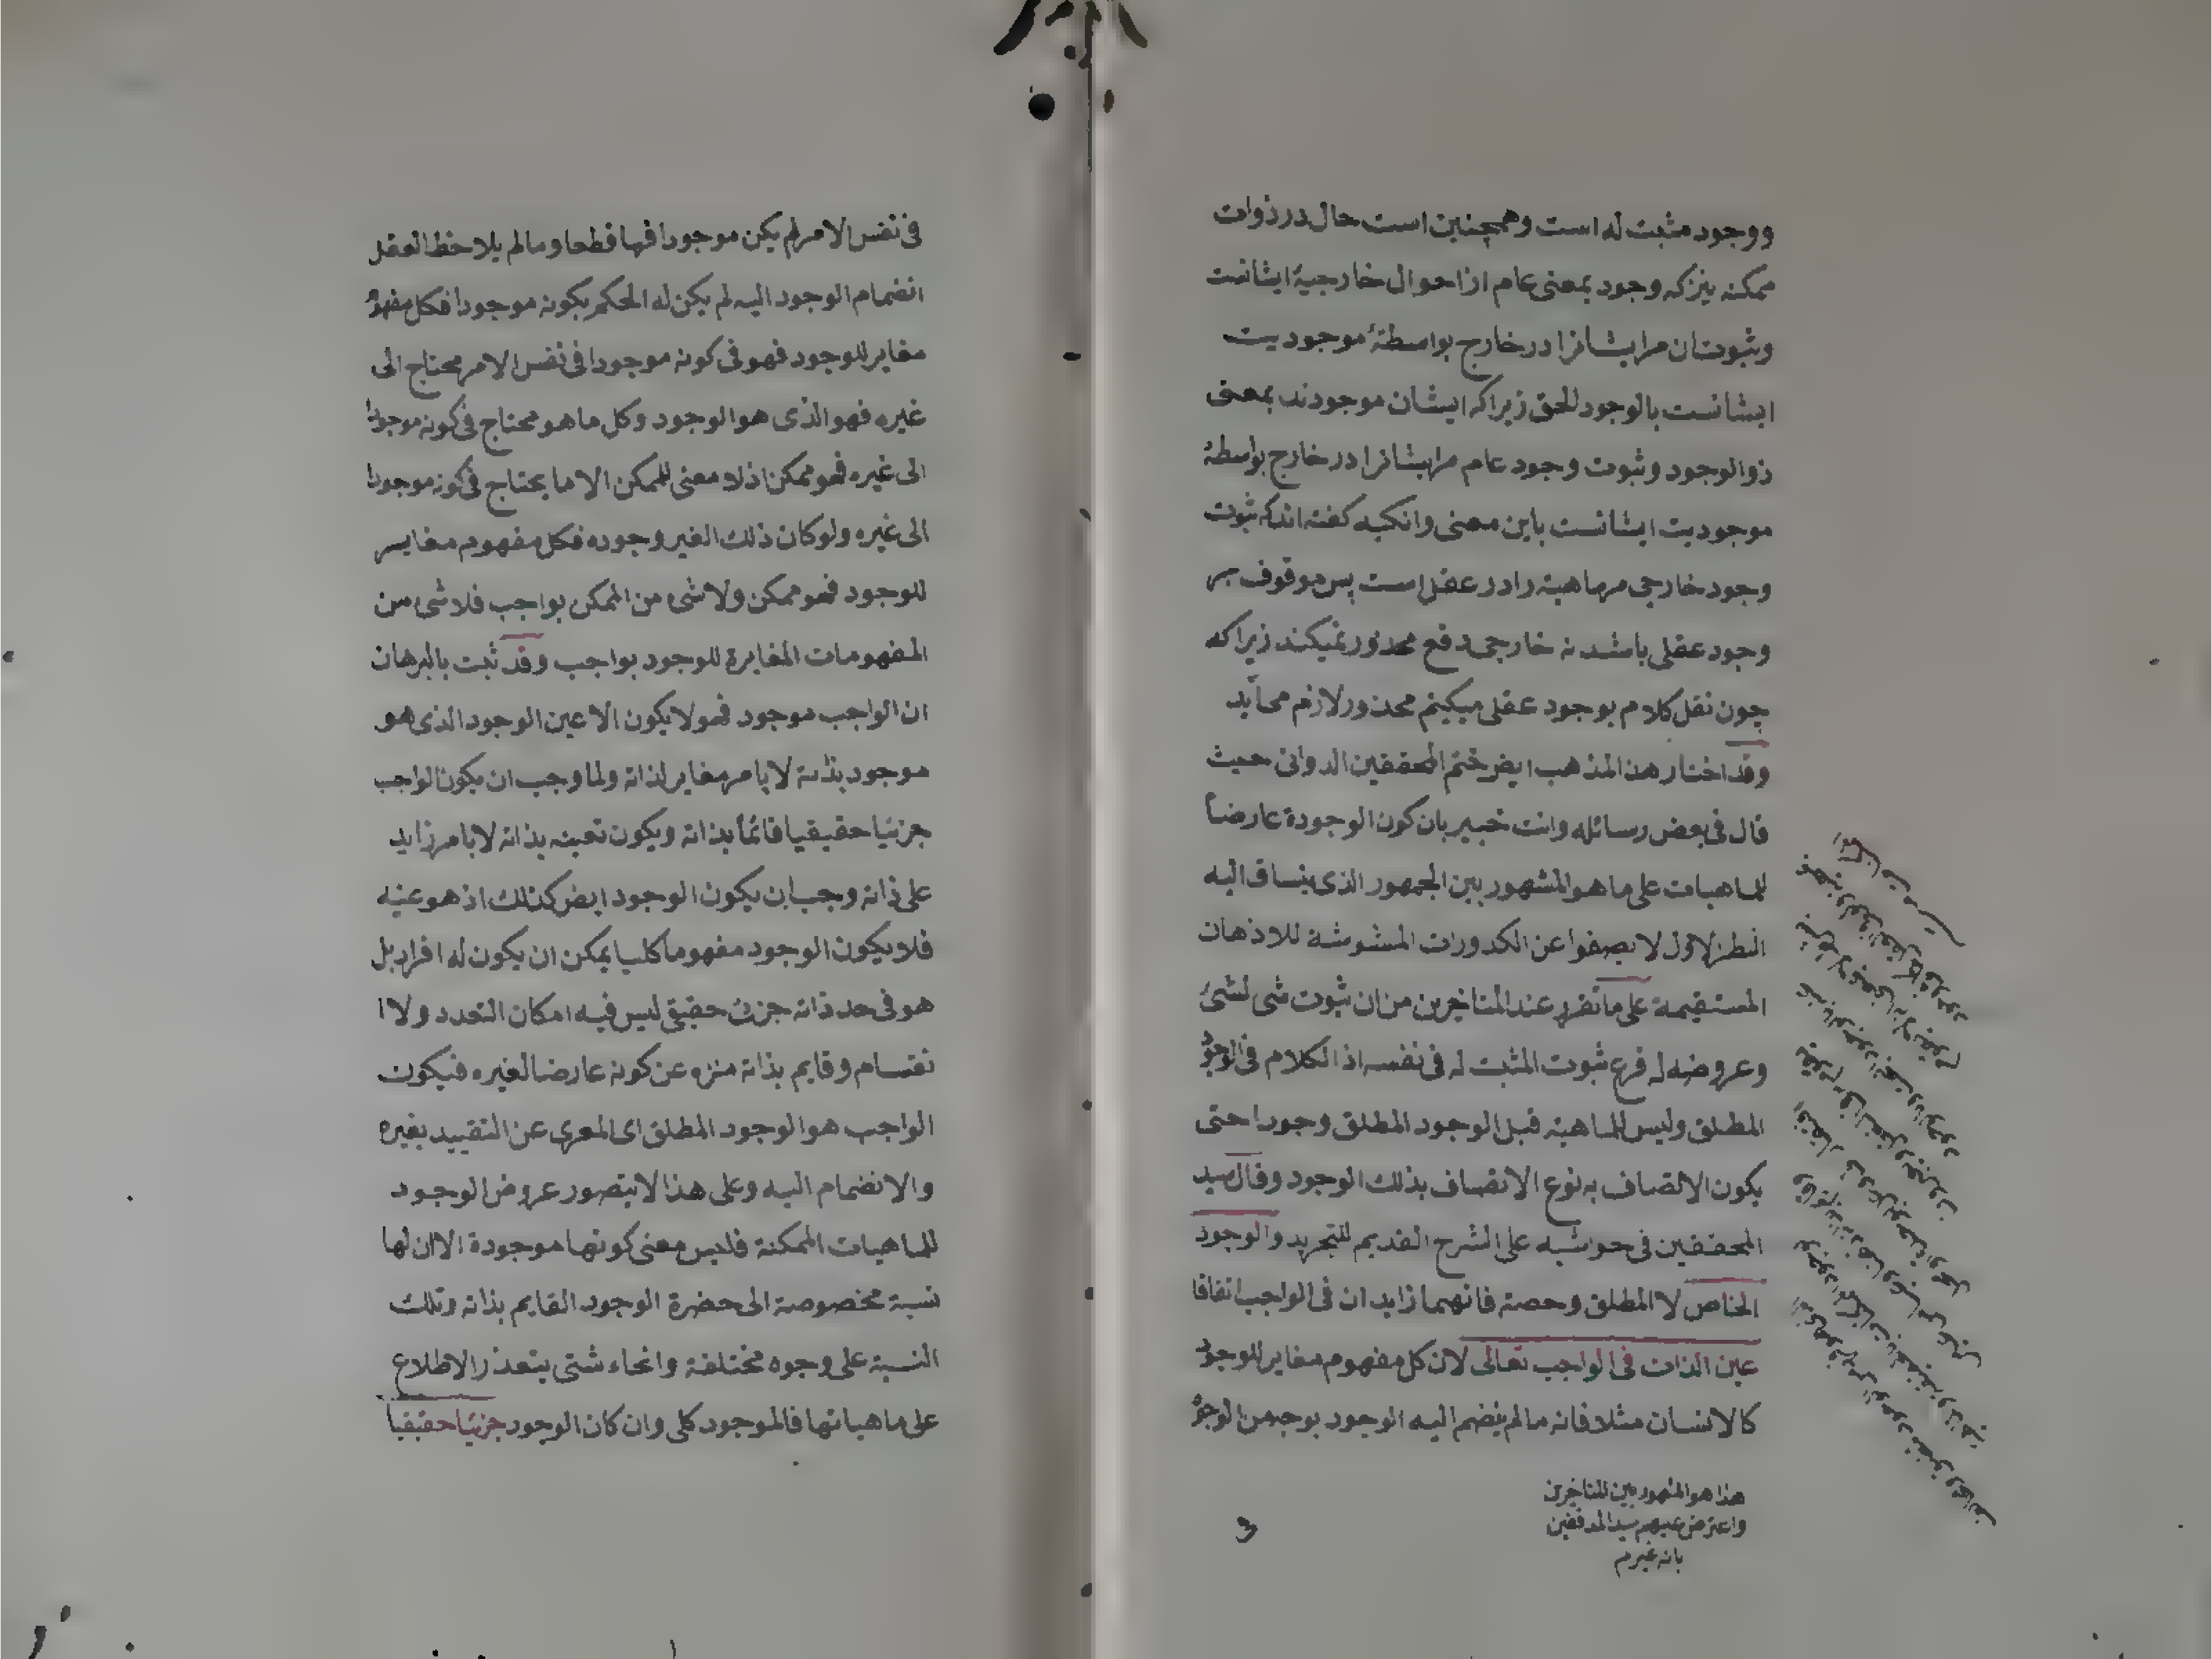 ووجود مثبت له است وهمچنین است حال در ذوات
ممکنه نیز که وجود بمعنی عام از احوال خارجیهٔ ایشانست
وثبوت ان مرایشانرا در خارج بواسطهٔ موجودیت
ایشانست بالوجود للحق زیرا که ایشان موجودند بمعنی
ذوالوجود وثبوت وجود عام مرایشانرا در خارج بواسطهٔ
موجودیت ایشانست باین معنی وانکه گفته اند که ثبوت
وجود خارجی مرماهیة را در عقل است پس موقوف بر
وجود عقلی باشد نه خارجی دفع محذور نمیکند زیرا که
چون نقل کلام بوجود عقلی میکنیم محذور لازم می آید
وقد اختار هذا المذهب ایض ختم المحققین الدوانی حیث
قال فی بعض رسائله وانت خبیر بان کون الوجودة عارضاً
للماهیات علی ما هو المشهور بین الجمهور الذی ینساق الیه
النظر الاول لا یصفوا عن الکدورات المشوشة للاذهان
المستقیمة علی ما تقرر عند المتاخرین من ان ثبوت شی لشئ
وعروضه له فرع ثبوت المثبت له فی نفسه اذ الکلام فی الوجود
المطلق ولیس للماهیة قبل الوجود المطلق وجود احتی
یکون الاتصاف به نوع الاتصاف بذلک الوجود وقال سید
المحققین فی حواشیه علی الشرح القدیم للتجرید والوجود
الخاص لا المطلق وحصته فانهما زایدان فی الواجب اتفاقا
عین الذات فی الواجب تعالی لان کل مفهوم مغایر للوجود
کالانسان مثلا فانه ما لم ینضم الیه الوجود بوجه من الوجوه
هذا هو المشهور بین المتاخرین
واعترض علیهم سید المدققین
بانه غیرم
3
فی نفس الامر لم یکن موجودا فیها قطعا وما لم یلاحظ العقل
انضمام الوجود الیه لم یکن له الحکم بکونه موجودا فکل مفهوم
مغایر للوجود فهو فی کونه موجودا فی نفس الامر محتاج الی
غیره فهو الذی هو الوجود وکل ما هو محتاج فی کونه موجودا
الی غیره فهو ممکن اذ لا معنی للممکن الا ما یحتاج فی کونه موجودا
الی غیره ولو کان ذلک الغیر وجوده فکل مفهوم مغایر
للوجود فهو ممکن ولا شئ من الممکن بواجب فلا شئ من
المفهومات المغایرة للوجود بواجب وقد ثبت بالبرهان
ان الواجب موجود فهو لا یکون الا عین الوجود الذی هو
موجود بذاته لا بامر مغایر لذاته ولما وجب ان یکون الواجب
جزئیا حقیقیا قائماً بذاته ویکون تعینه بذاته لا بامر زاید
علی ذاته وجب ان یکون الوجود ایض کذلک اذ هو عینه
فلا یکون الوجود مفهوما کلیا یمکن ان یکون له افراد بل
هو فی حد ذاته جزئ حقیقی لیس فیه امکان التعدد ولا ا
نقسام وقایم بذاته منزه عن کونه عارضا لغیره فیکون
الواجب هو الوجود المطلق ای المعری عن التقیید بغیره
والانضمام الیه وعلی هذا لا یتصور عروض الوجود
للماهیات الممکنة فلیس معنی کونها موجودة الا ان لها
نسبة مخصوصة الی حضرة الوجود القایم بذاته وتلک
النسبة علی وجوه مختلفة وانحاء شتی یتعذر الاطلاع
علی ماهیاتها فالموجود کلی وان کان الوجود جزئیا حقیقیا